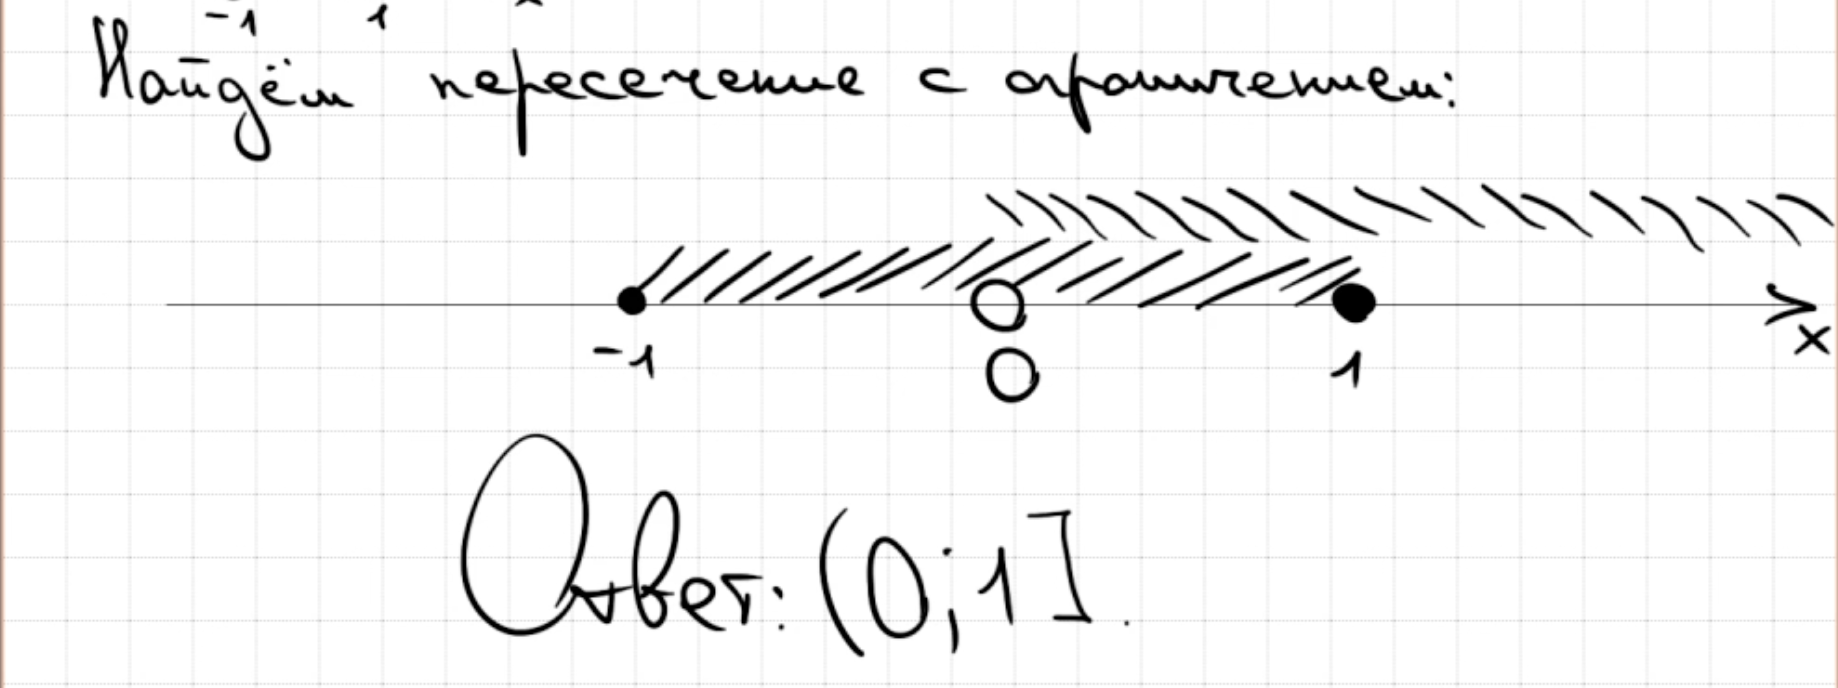 -1 1
Найдём пересечение с ограничением:
-1 0 1 x
Ответ: (0;1].